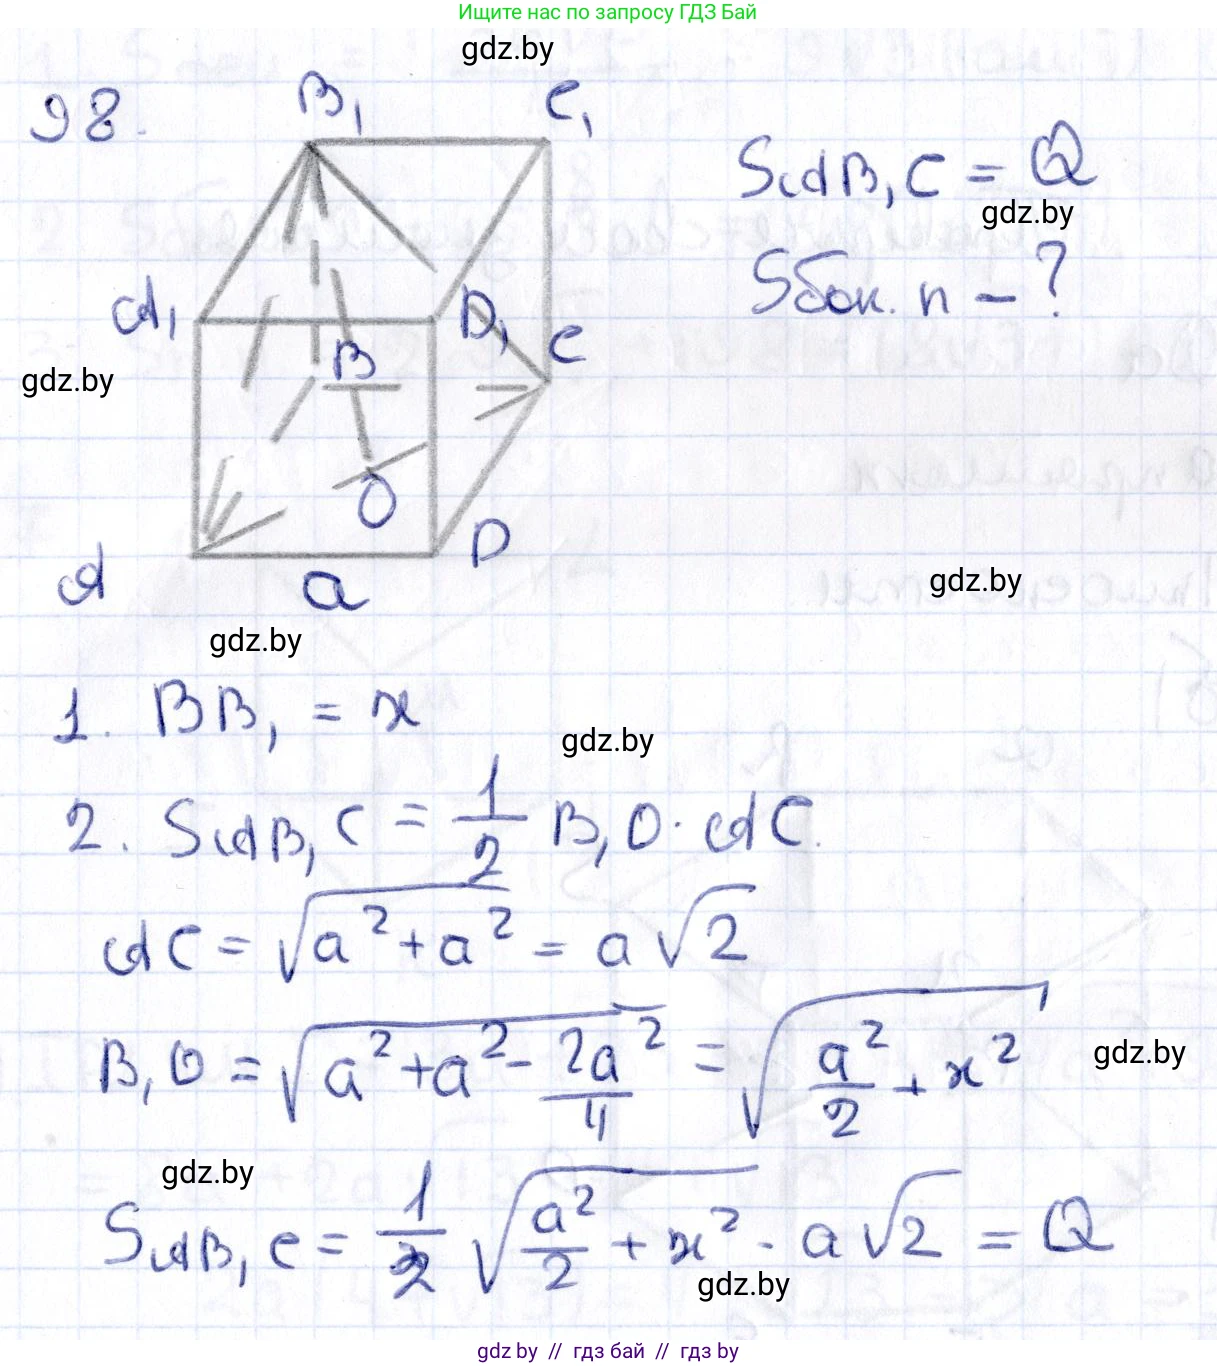 Ищите нас по запросу ГДЗ Бай
gdz.by
98.
B₁
C₁
SAB₁C = Q
gdz.by
Sбок. п – ?
A₁
D₁
B
C
gdz.by
O
D
A
a
gdz.by
gdz.by
1. BB₁ = x
gdz.by
2. SAB₁C = 1/2 B₁O · AC.
AC = √(a² + a²) = a√2
B₁O = √(a² + a² - 2a²/4) = √(a²/2 + x²)
gdz.by
gdz.by
SAB₁C = 1/2 √(a²/2 + x²) · a√2 = Q
gdz.by
gdz.by // гдз бай // гдз by